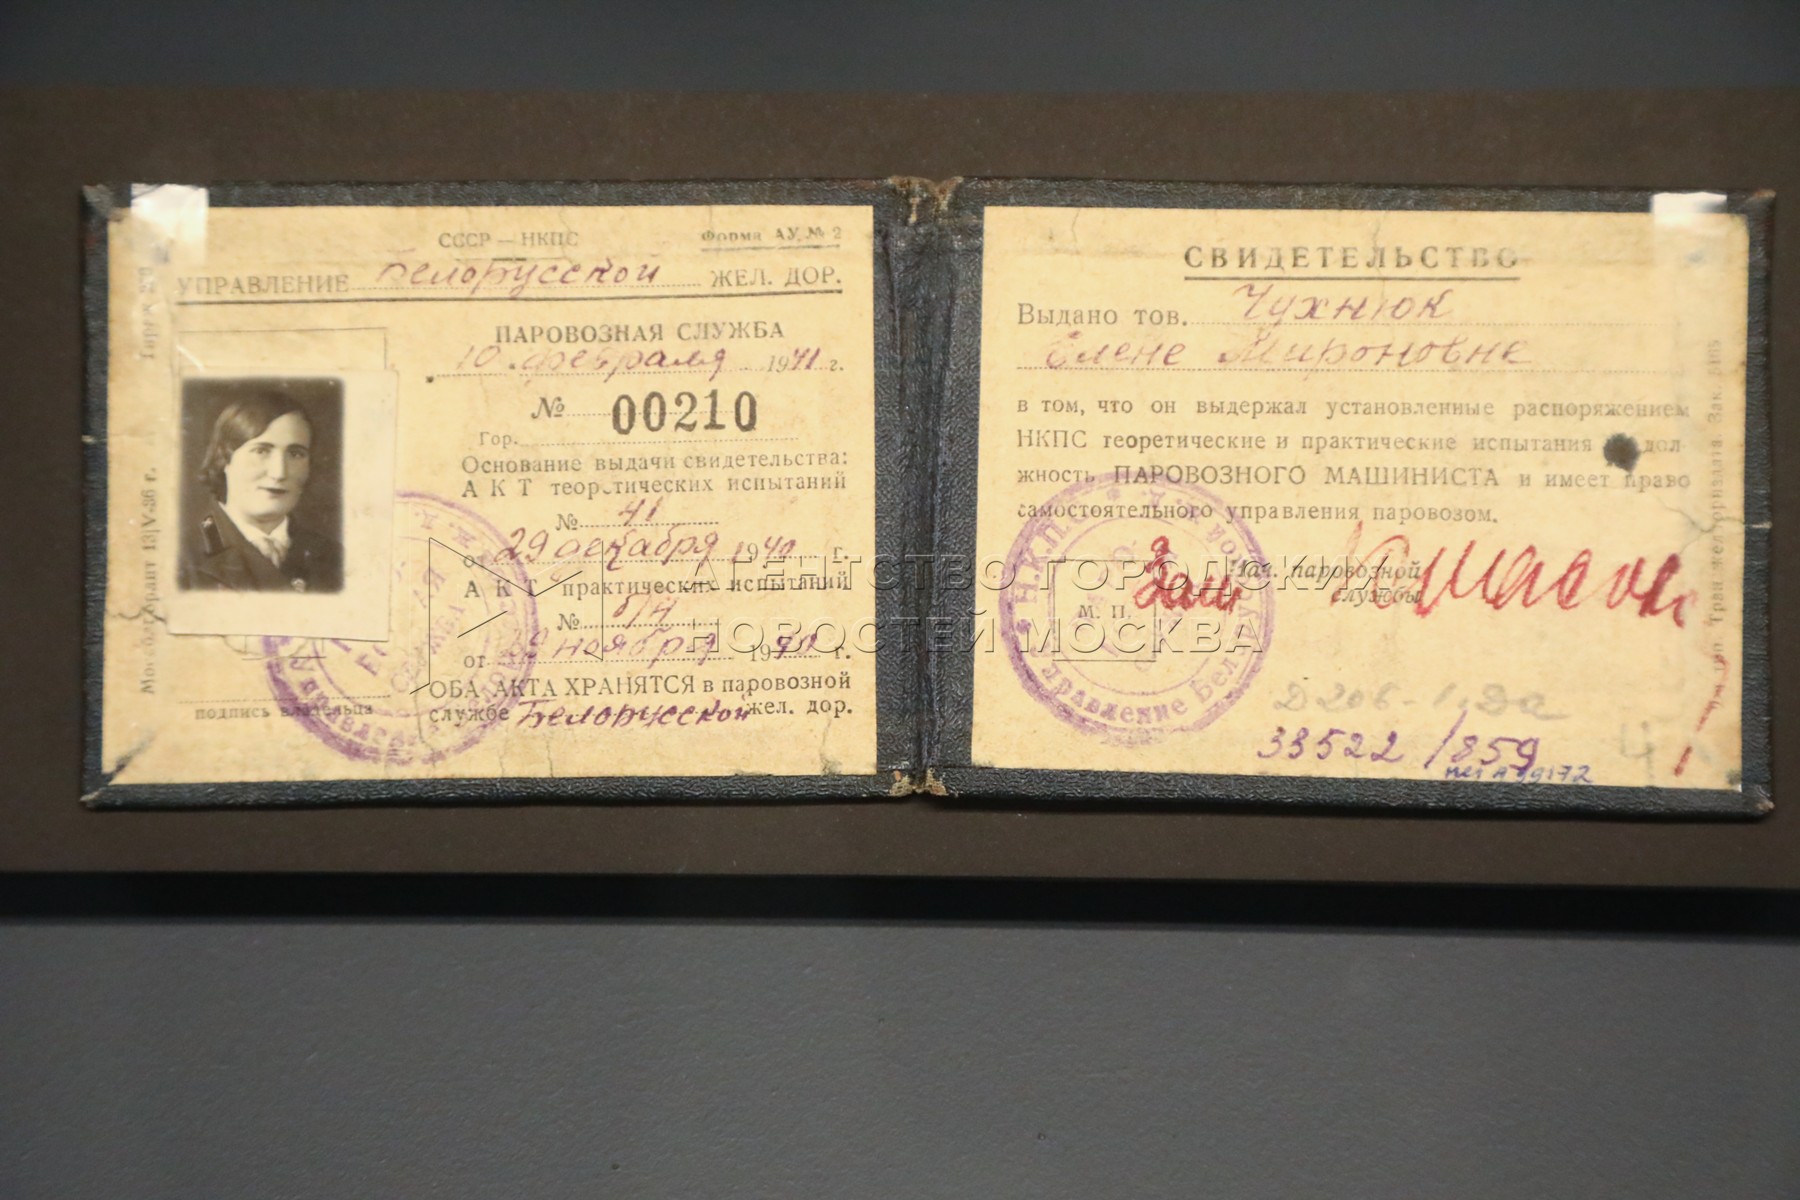 СССР — НКПС
Форма АУ. № 2
УПРАВЛЕНИЕ Белорусской ЖЕЛ. ДОР.
ПАРОВОЗНАЯ СЛУЖБА
10 февраля 1941 г.
№ 00210
Гор.
Основание выдачи свидетельства:
АКТ теоретических испытаний
№ 41
от 29 декабря 1940 г.
АКТ практических испытаний
№ б/н
от 29 ноября 1940 г.
ОБА АКТА ХРАНЯТСЯ в паровозной
службе Белорусской жел. дор.
подпись владельца
СВИДЕТЕЛЬСТВО
Выдано тов. Чухнюк
Елене Мироновне
в том, что он выдержал установленные распоряжением
НКПС теоретические и практические испытания на дол-
жность ПАРОВОЗНОГО МАШИНИСТА и имеет право
самостоятельного управления паровозом.
Зам Нач. паровозной
службы
М. П.
Н.К.П.С.
Управление Бел
33522/859
АГЕНТСТВО ГОРОДСКИХ
НОВОСТЕЙ МОСКВА